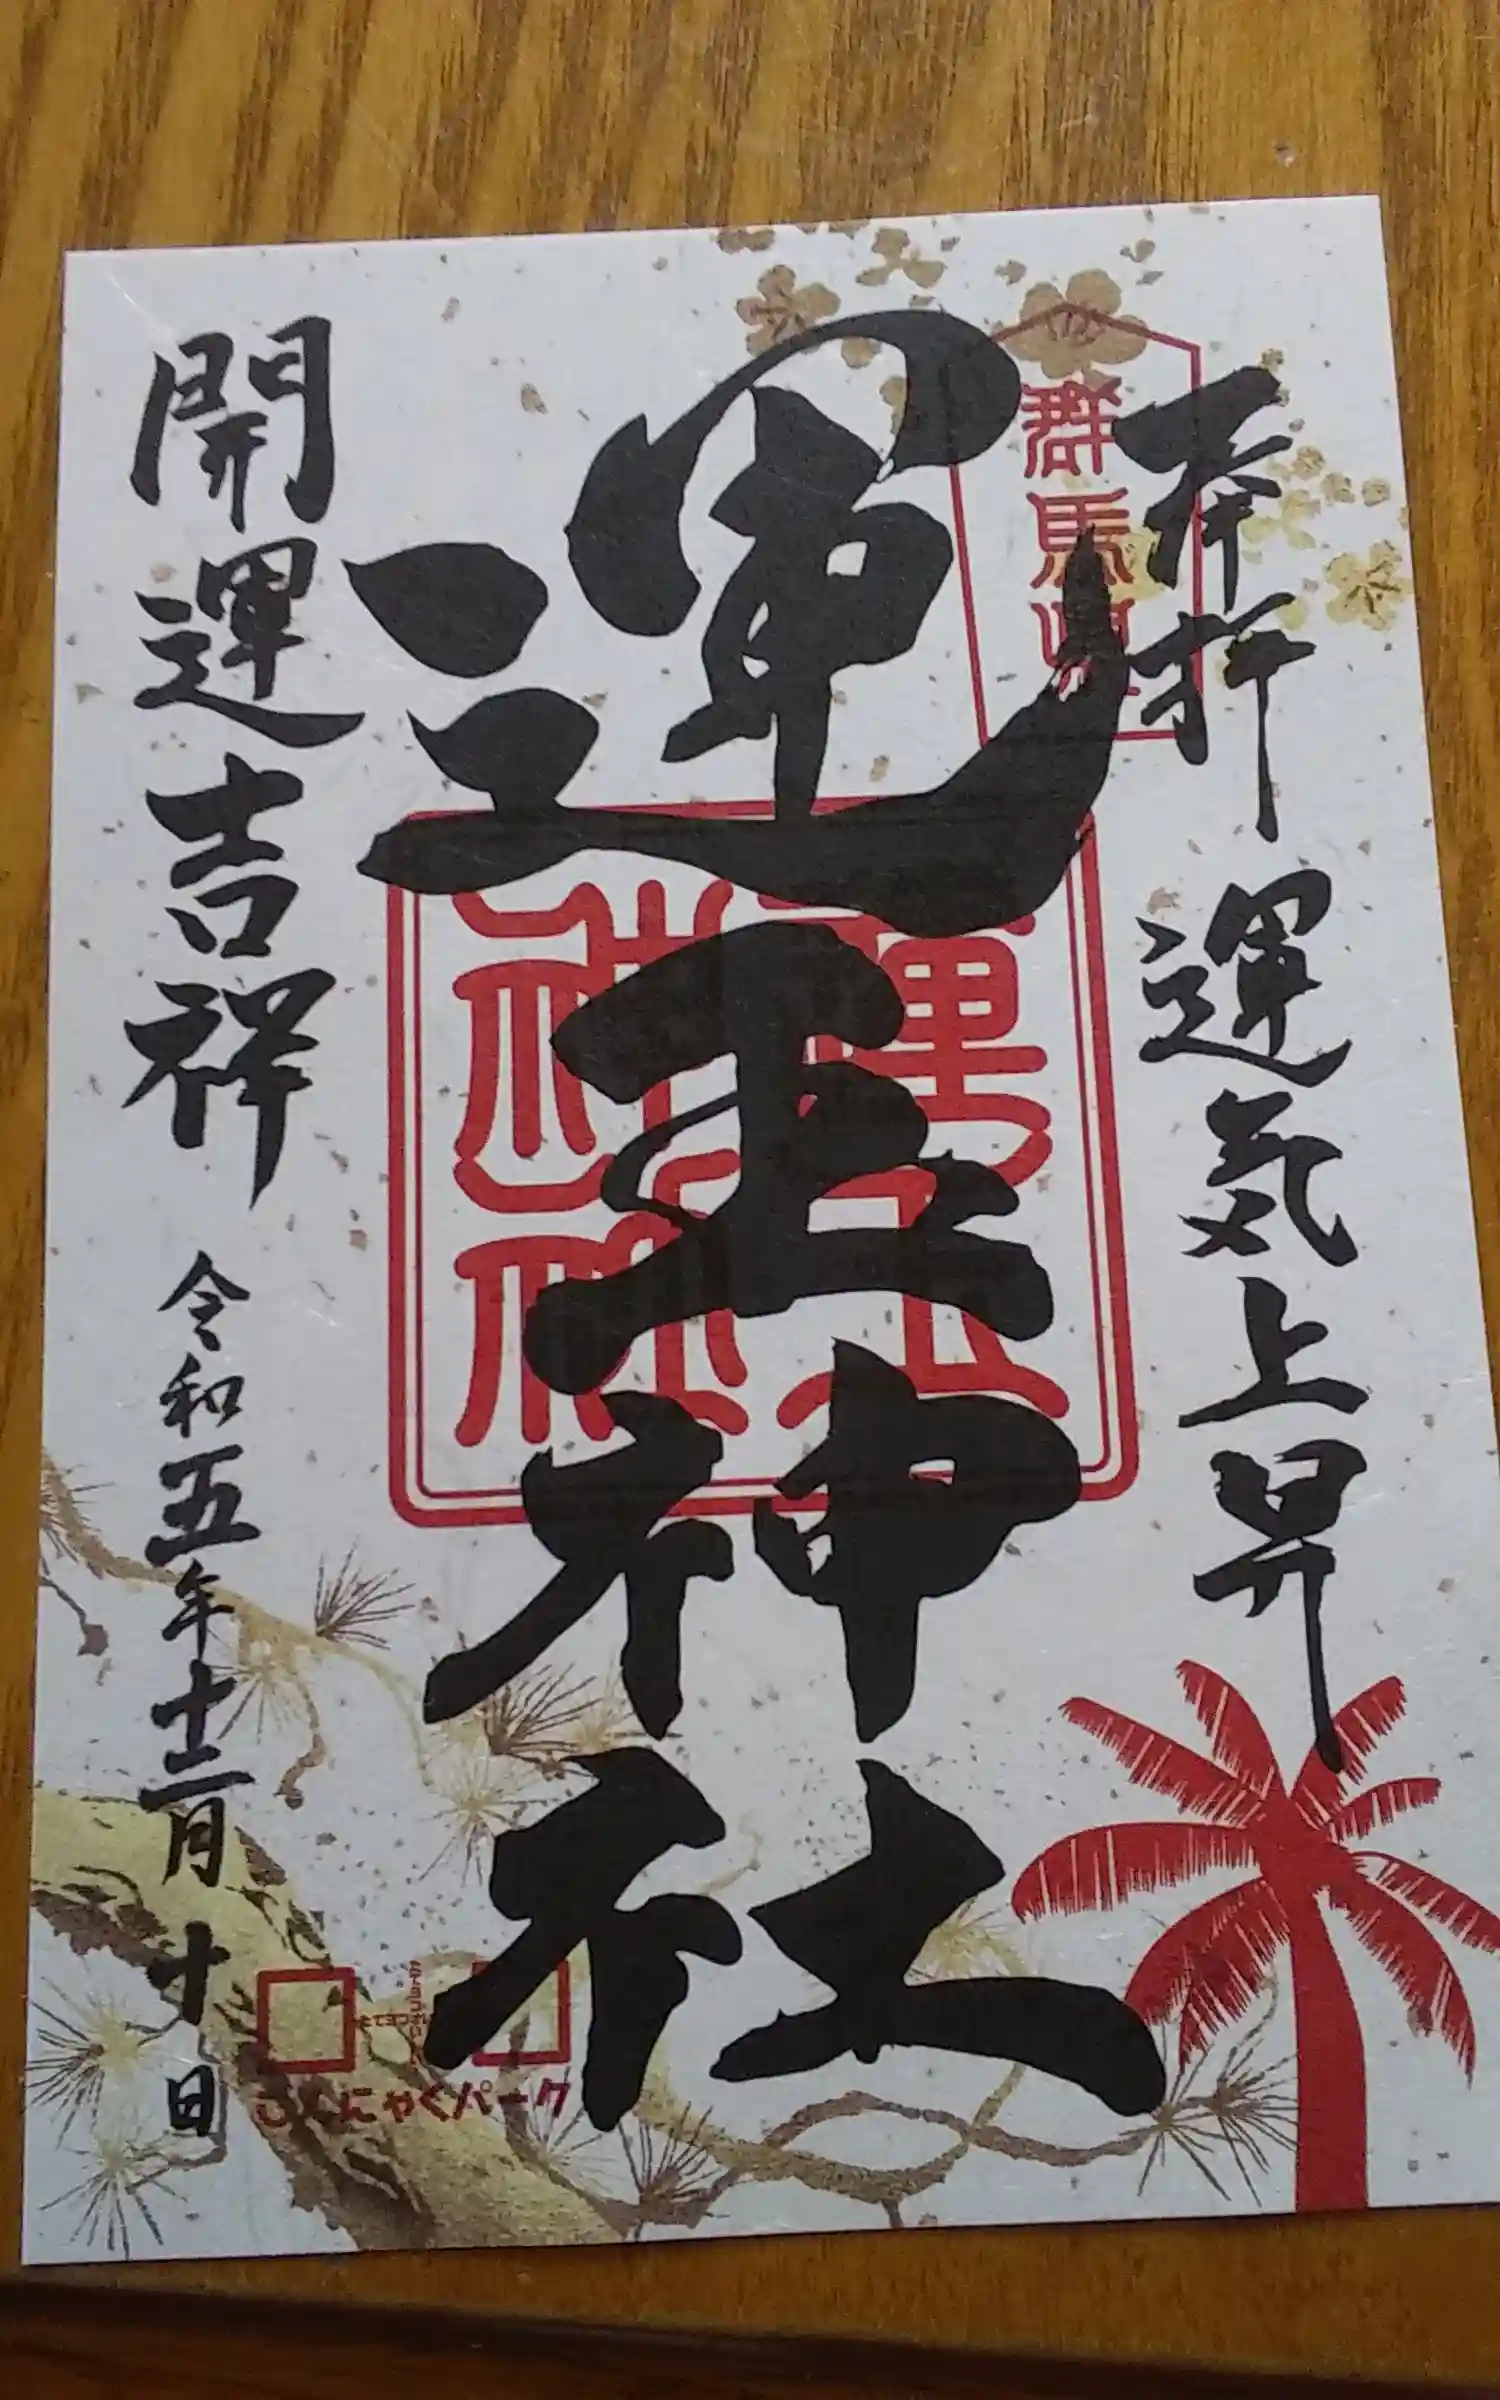 奉拝 運気上昇
群馬県
運玉神社
運玉神社
開運吉祥 令和五年十二月十日
こんにゃくパーク